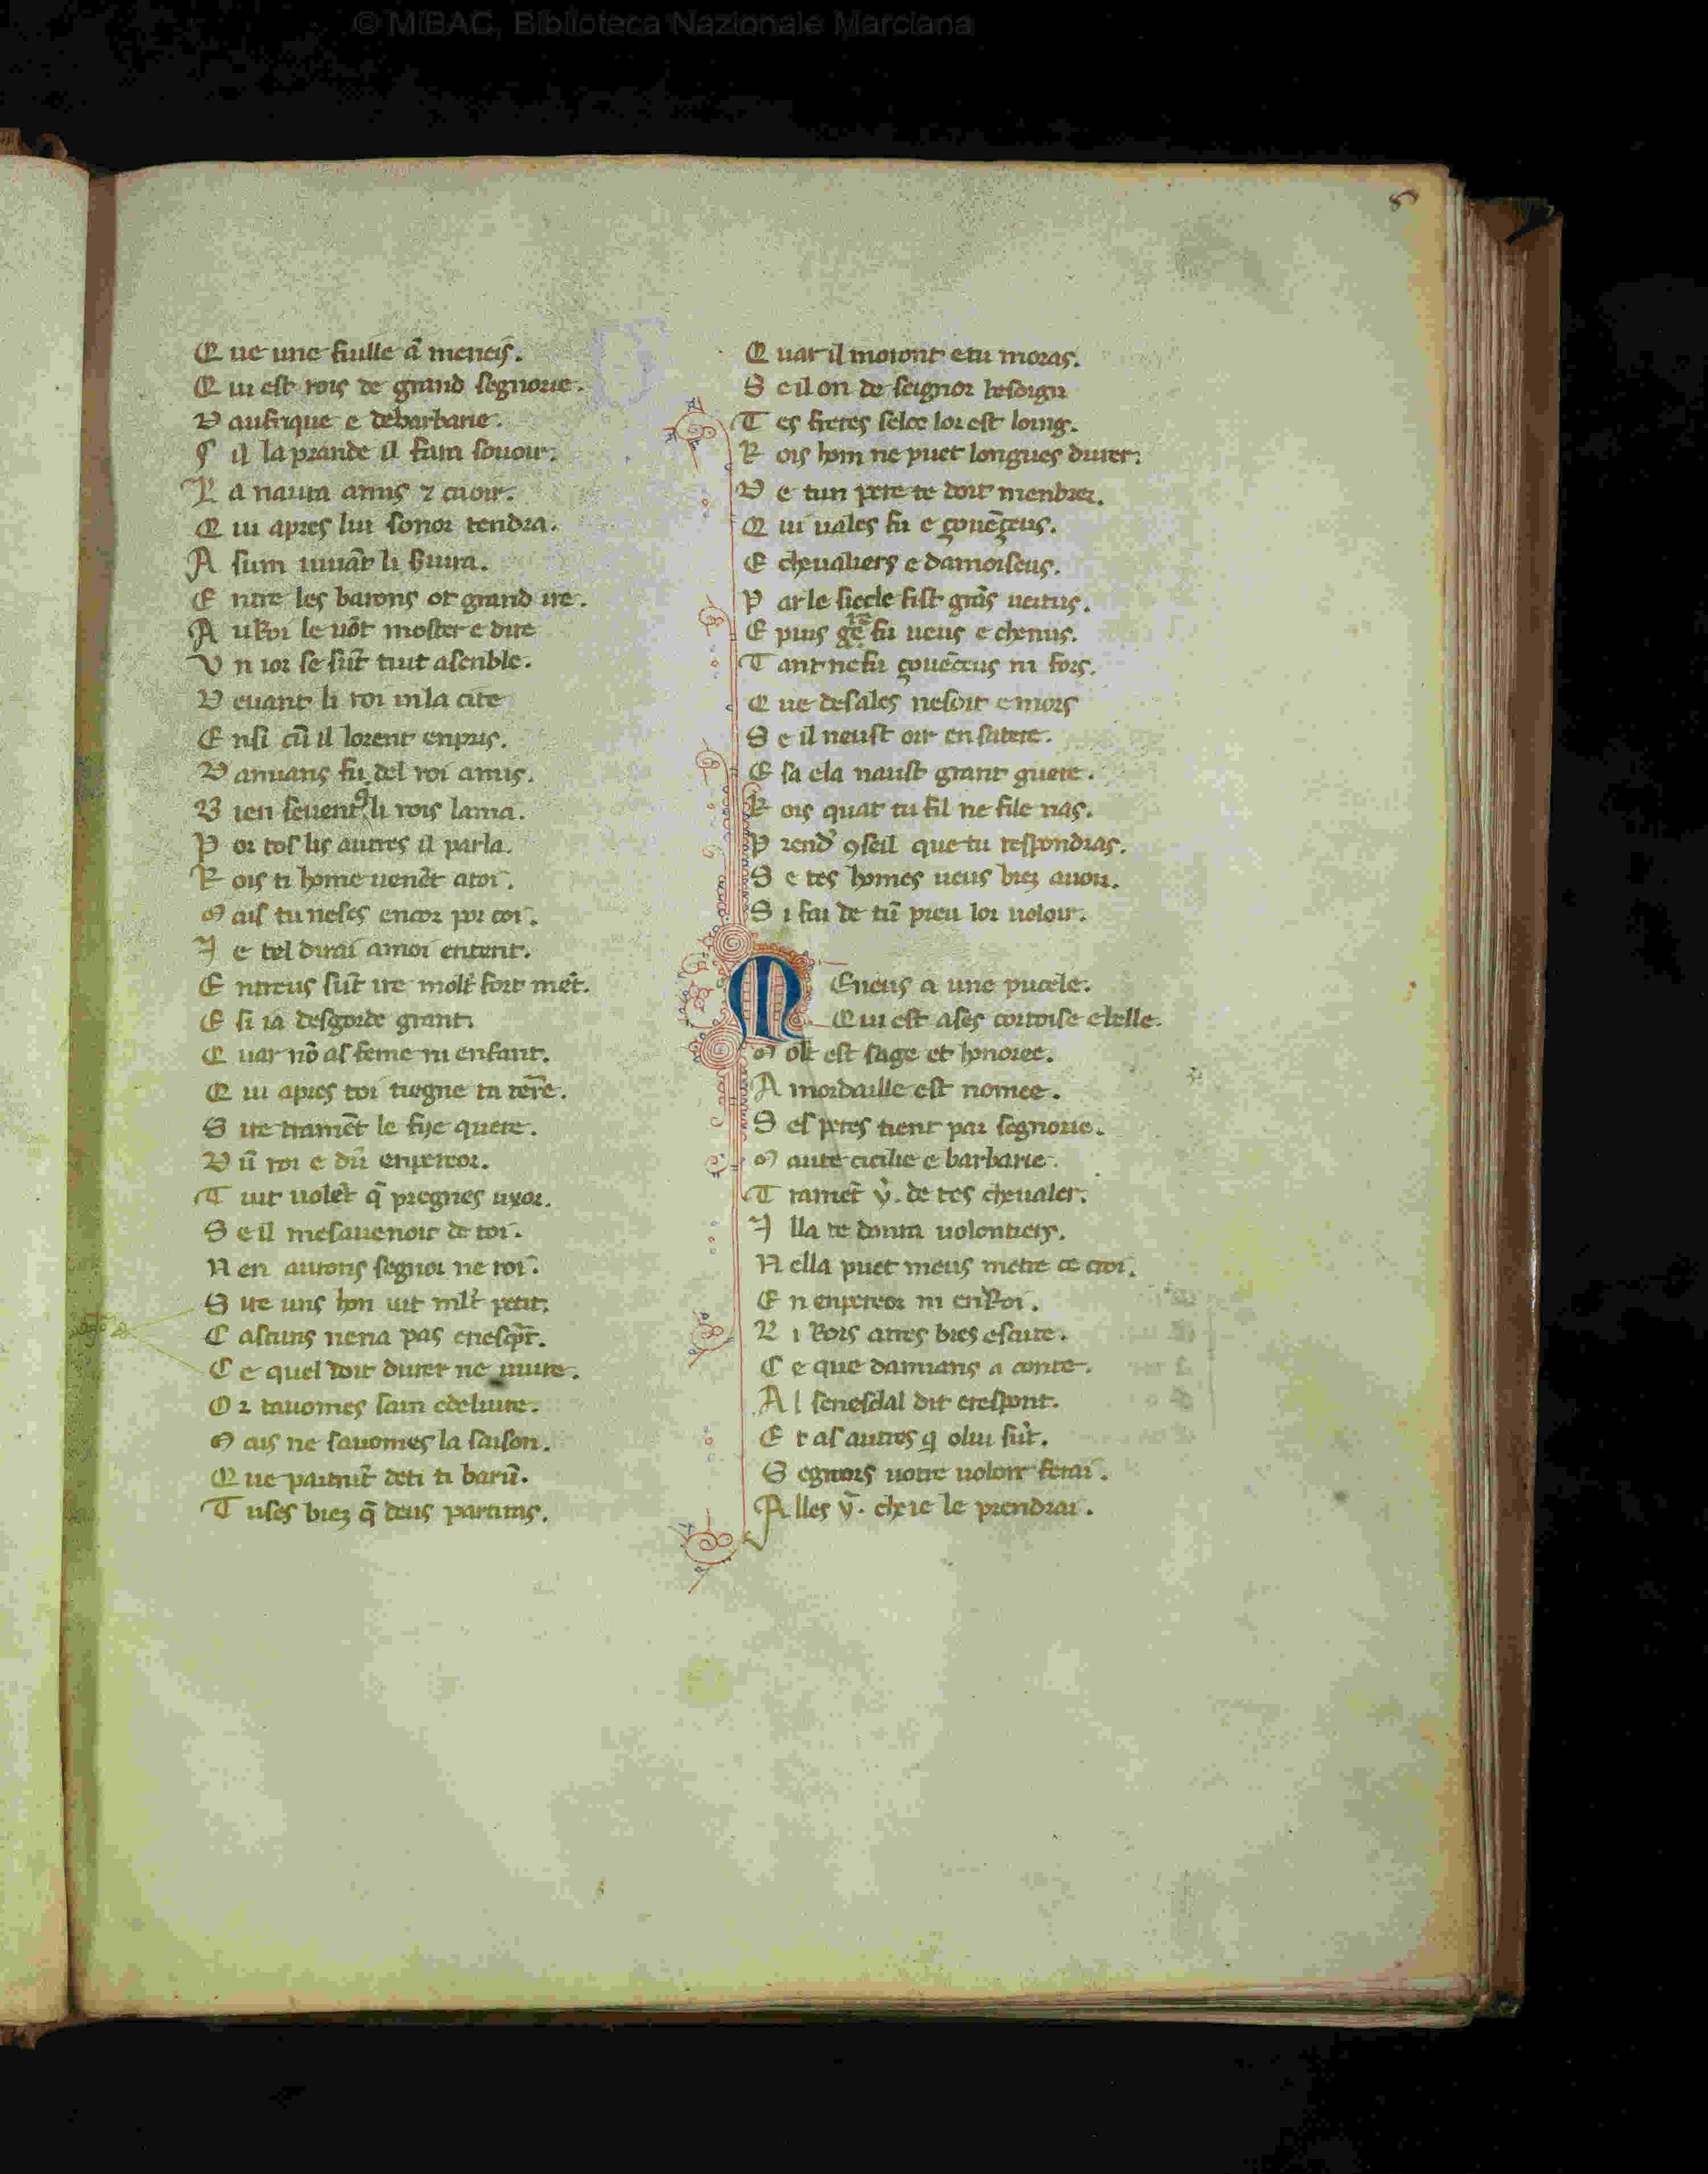 © MiBAC, Biblioteca Nazionale Marciana
8
Q ue une fiulle a meneis.
Q ui est rois de grand segnorie.
D aufrique e debarbarie.
S il la prande il fam sonoir.
L a naura amis 7 cuoir.
Q ui apres lui sonor tendra.
A sum uiuãt li
E ntre les barons ot grand ire.
A u Roi le uõt moster e dire
V n ior se sũt tuit asenble.
D euant li roi inla cite
E nsi cũ il lorent enpris.
D amians fu del roi amis.
B ien seuent li rois lama.
P or tos lis autres il parla.
R ois ti home uenẽt atoi.
M ais tu neses encor por coi.
I e tel dirai amoi entent.
E ntreus sũt ire molt fort mẽt.
E si ia desgorde grant.
Q uar nõ as feme ni enfant.
Q ui apres toi tiegne ta terre.
S ire tramẽt le fije quere.
D ũ roi e dũ enpereor.
T uit uolẽt q̃ pregnes uxor.
S e il mesauenoit de toi.
N en aurons segnor ne roi.
S ire uns hon uit mlt petit.
C ascuns neria pas
C e quel doit durer ne uiure.
O r tauomes sain edeliure.
M ais ne sauomes la saison.
Q ue partirũt deti ti barũ.
T uses biez q̃ deus partiras.
Q uar il moront etu moras.
S eil on de seignor besoign
T es freres selce lor est loing.
R ois hom ne puet longues durer.
D e tun pere te doit menbrer.
Q ui uales fu e çouẽçeus.
E cheualiers e damoiseus.
P ar le siecle fist grãs uertus.
E puis fu ueus e chenus.
T ant nefu çouẽceus ni fors.
Q ue desales nesoit emors
S e il neust oir en saterre.
E sa ela naust grant guere.
R ois quar tu fil ne file nas.
P rend 9seil que tu respondras.
S e tes homes ueus biez auoir.
S i fai de tũ preu lor uoloir.
M Eneus a une pucele.
Qui est ases cortoise ebelle.
M olt est sage et honoree.
A mordaille est nomee.
S es peres tient par segnorie.
M aute cicilie e barbarie.
T ramet v̊. de tes cheualer.
I lla te donra uolontiers.
N ella puet meus metre ce croi.
E n enpereor ni en Roi.
L i Rois atres bies escute.
C e que damians a conte.
A l seneschal dit erespont.
E t as autres q olui sũt.
S egnors uotre uoloir ferai.
A lles v̊. che ie le prendrai.